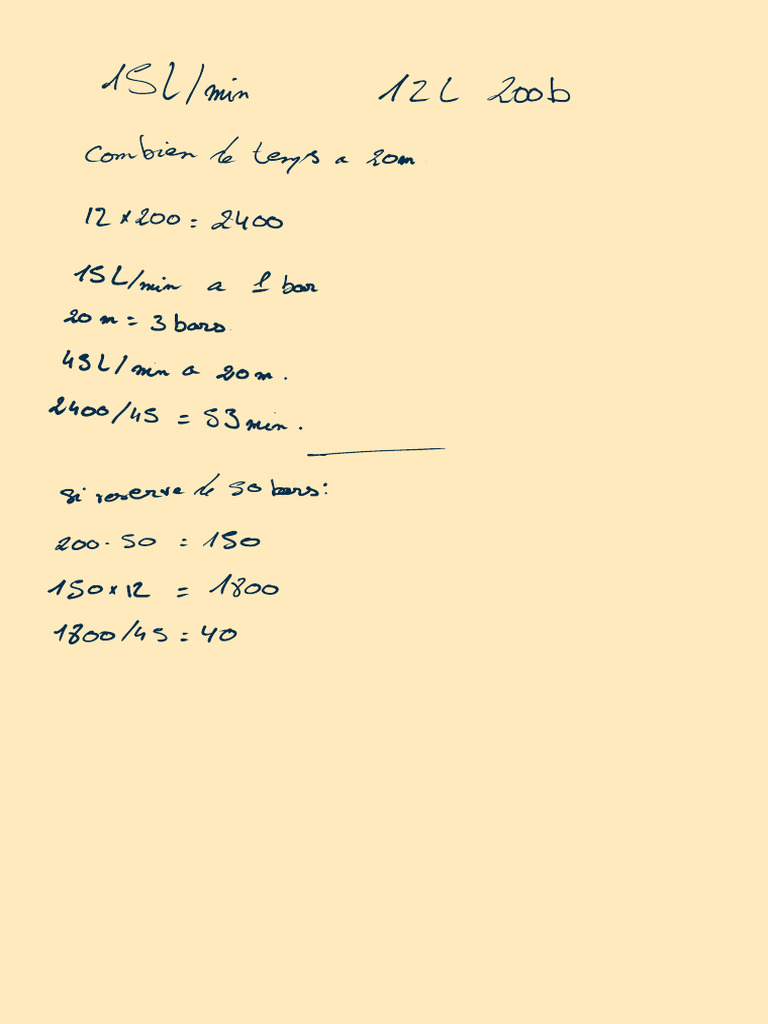 15L/min 12L 200b
combien de temps a 20m
12 × 200 = 2400
15L/min a 1 bar
20 m = 3 bars
45L/min a 20m.
2400/45 = 53min.
si reserve de 50 bars:
200 - 50 = 150
150 × 12 = 1800
1800/45 = 40